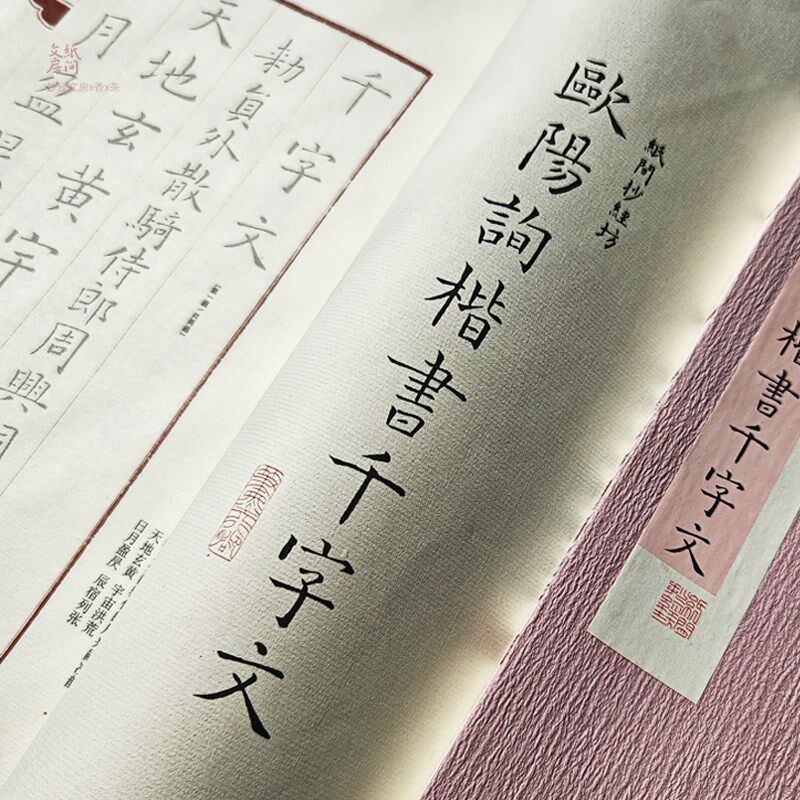 紙間
文房
抄经文房x香x茶
千字文
勅員外散騎侍郎周興嗣
天地玄黄
宇
月盈昃
歐陽詢楷書千字文
紙間抄經坊
楷書千字文
天地玄黄
日月盈昃
宇宙洪荒
辰宿列张